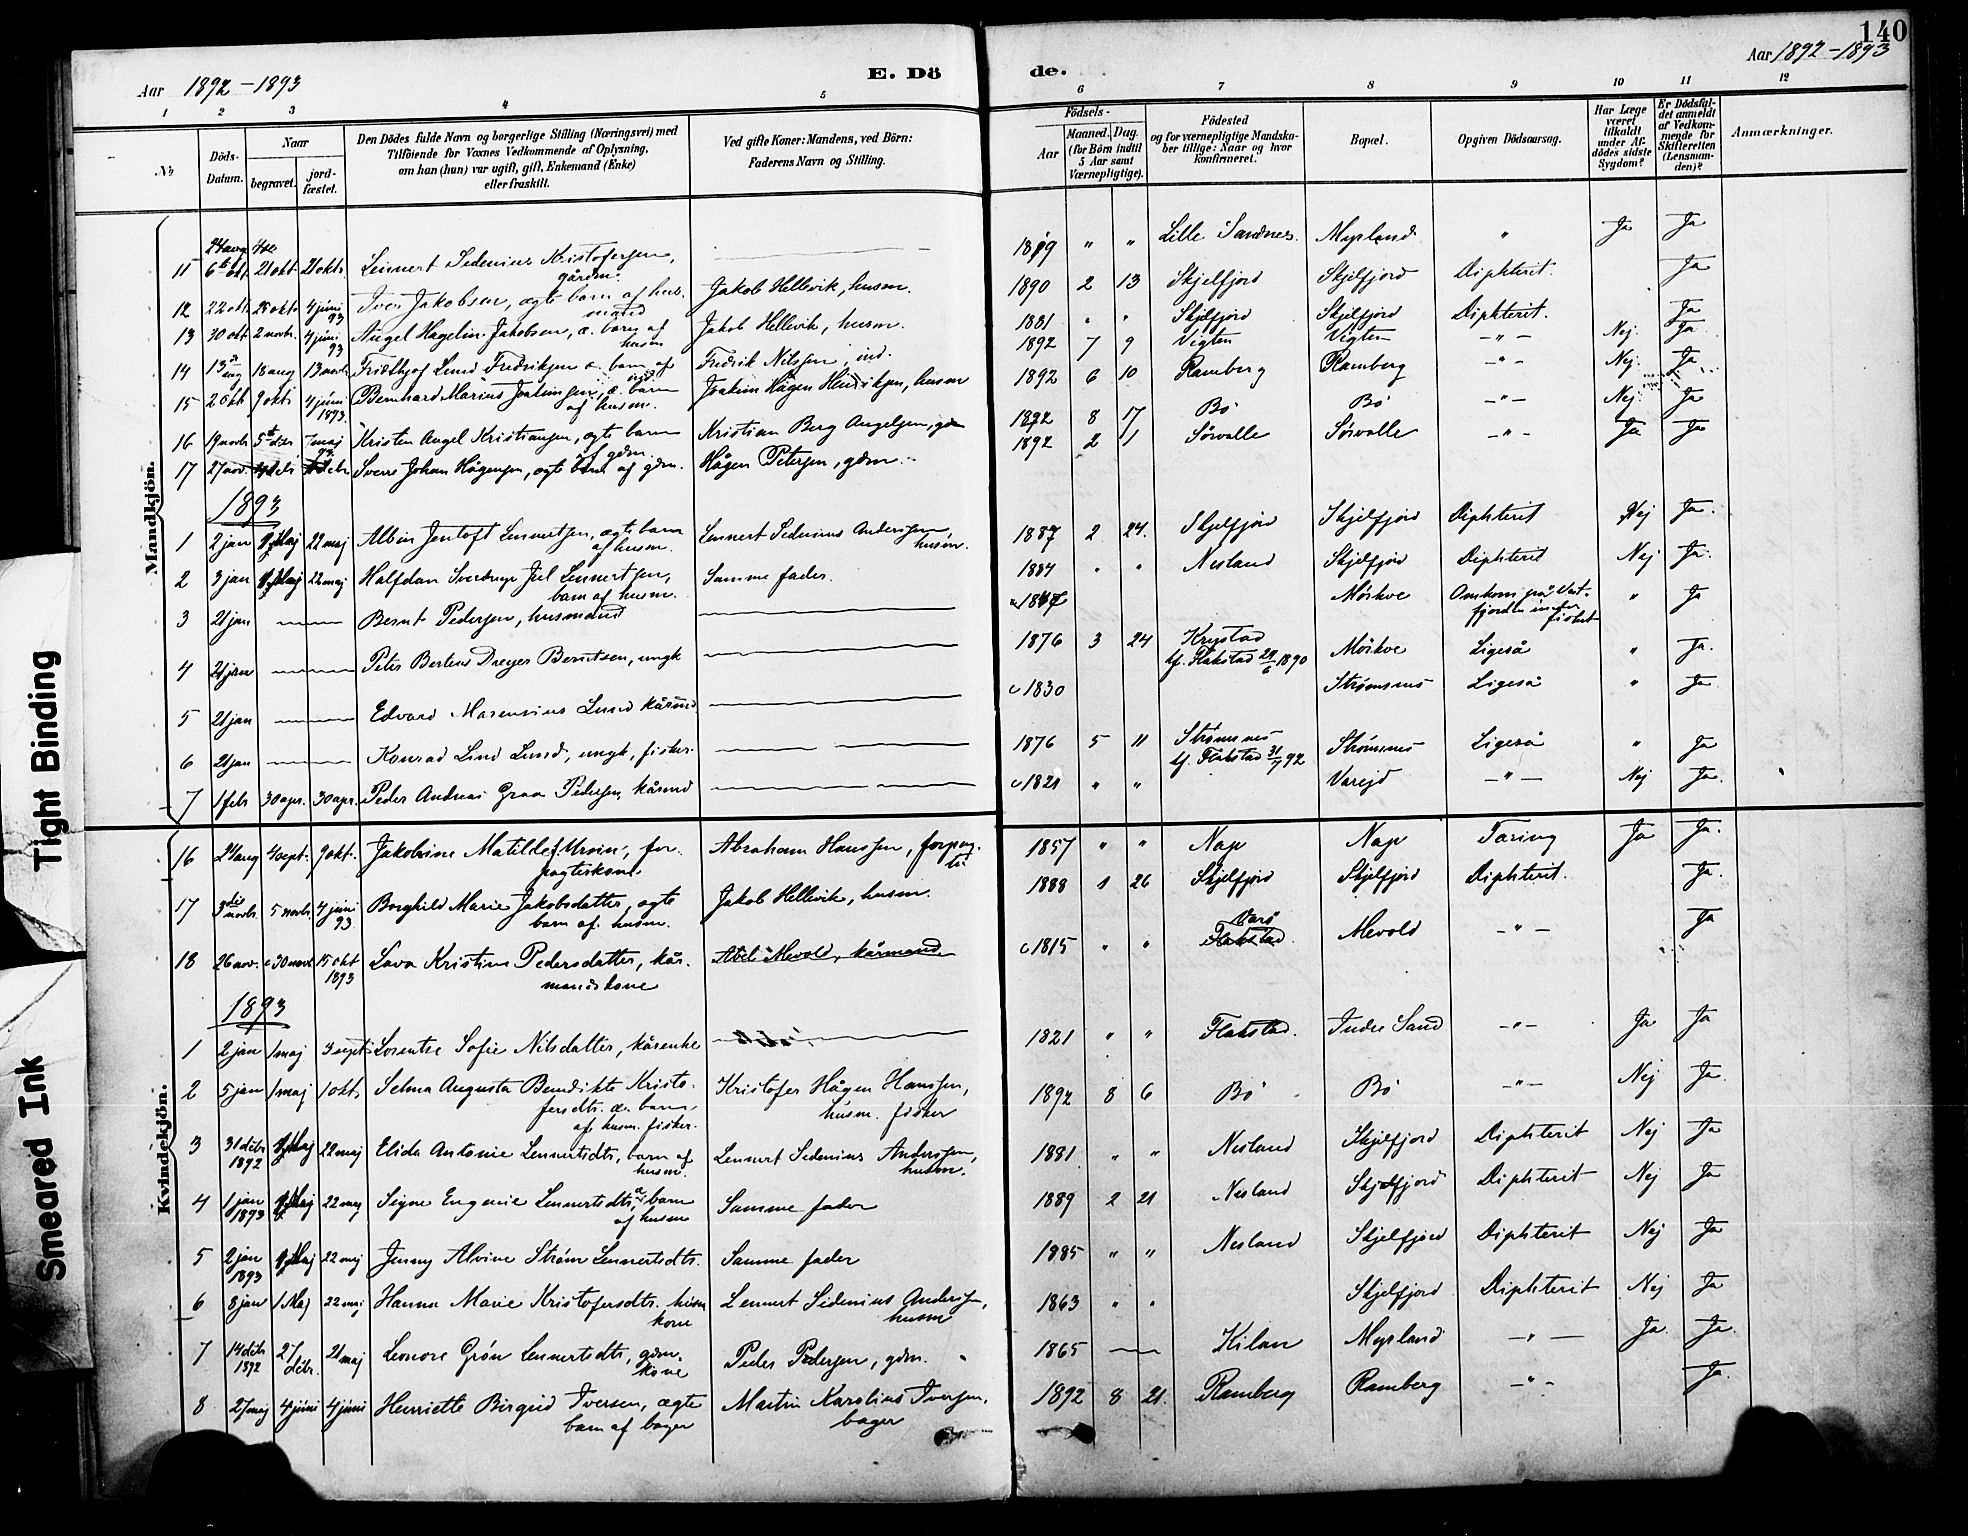 140
Aar 1892–1893
E. Dö
de.
Aar 1892–1893
1 2 3 4 5 6 7 8 9 10 11 12
№
Döds-Datum.
Naar
begravet.
jord-fæstet.
Den Dödes fulde Navn og borgerlige Stilling (Næringsvei) med
Tilföiende for Voxnes Vedkommende af Oplysning,
om han (hun) var ugift, gift, Enkemand (Enke)
eller fraskilt.
Ved gifte Koner: Mandens, ved Börn:
Faderens Navn og Stilling.
Födsels-
Aar
Maaned. Dag.
(for Börn indtil
5 Aar samt
Værnepligtige).
Födested
og for værnepligtige Mandska-
ber tillige: Naar og hvor
Konfirmeret.
Bopæl.
Opgiven Dödsaarsag.
Har Læge
været
tilkaldt
under Af-
dödes sidste
Sygdom?
Er Dödsfal-
det anmeldt
af Vedkom-
mende for
Skifteretten
(Lensman-
den)?
Anmærkninger.
Mandkjön.
11 21 okt 21 okt Lennert Sedenius Kristofersen, gårdm. Lille Sandnes Myrland " Ja Ja
12 22 okt 28 okt 4 juni 93 Iver Jakobsen, ægte barn af hus-mand Jakob Hellevik, husm. 1890 2 13 Skjelfjord Skjelfjord Diphterit. Ja
13 30 okt 2 novbr 4 juni 93 Angel Hagelin Jakobsen, æ. barn af husm Jakob Hellevik, husm. 1881 " " Skjelfjord Skjelfjord Diphterit. Ja
14 13 aug 18 aug 13 novb Fridthjof Lund Fredriksen æ. barn af ind. Fredrik Nilssen, ind. 1892 7 9 Vigten Vigten —"— Nej. Ja
15 2 okt 9 okt 4 juni 1893 Bernhard Marius Joakimsen, æ. barn af husm. Joakim Hågen Henriksen, husm 1892 6 10 Ramberg Ramberg —"— Nej. Ja
16 19 novb 5te dcbr 7 maj 93 Kristen Angel Kristiansen, ægte barn af gdm. Kristian Berg Angelsen, gdm 1892 8 17 Bö Bö —"— Nej Ja
17 27 nov. Sverre Johan Hågensen, ægte barn af gdm. Hågen Petersen, gdm. 1892 2 1 Sörvalle Sörvalle —"— Ja Ja
1893
1 2 jan 22 maj Albin Jentoft Lennertsen, ægte barn af husm. Lennert Sedenius Anderssen, husm. 1887 2 24. Skjelfjord Skjelfjord Diphterit Nej Ja.
2 3 jan 22 maj Halfdan Sverdrup Juel Lennertsen, barn af husm. Samme fader. 1884 " " Nesland Skjelfjord Diphterit Nej Ja.
3 21 jan Bernt Pedersen, husmand Mörkve Omkom på Vest-fjorden under fisket " Ja
4 21 jan Peter Bertens Dreyer Berntsen, ungk 1876 3 24 Krystad kf. Flakstad 29/6 1890 Mörkve Ligeså " Ja.
5 21 jan Edvard Marensius Lund kårmd c 1830 Strömsnes Ligeså " Ja
6 21 jan Konrad Lind Lund, ungk, fisker 1876 5 11 Strömsnes kf. Flakstad 31/7 92 Strömsnes Ligeså " Ja
7 1 febr 30 apr. 30 apr. Peder Andreas Graa Pedersen, kårmd c 1821 " " Vareid —"— Nej Ja.
Kvindekjön.
16 24 aug 4 sept. 9 okt. Jakobine Matilde f. Ursin, for-pagterkone Abraham Hanssen, forpag-ter 1857 " " Nap Nap Tæring Ja Ja.
17 3die novbr. 5 novbr. 4 juni 93 Borghild Marie Jakobsdatter, ægte barn af husm. Jakob Hellevik, husm. 1888 1 26 Skjelfjord Skjelfjord Diphterit. Ja.
18 26 nov. 30 nov 15 okt 1893 Lava Kristine Pedersdatter, kår-mandskone Mevold, kårmand c 1815 " " Flakstad Mevold —"— Ja
1893
1 2 jan 1 maj 3 sept. Lorentse Sofie Nilsdatter, kårenke 1821 " " Flakstad. Indre Sand —"— Ja Ja
2 5 jan 1 maj 1 okt. Selma Augusta Bendikte Kristo-fersdtr. æ. barn af husm. fisker. Kristofer Hågen Hanssen, husm. fisker 1892 8 6 Bö Bö —"— Nej Ja
3 31 dcbr 1892 22 maj Elida Antonie Lennertsdtr, barn af husm. Lennert Sedenius Anderssen, husm. 1881 " " Nesland Skjelfjord Diphterit Nej Ja
4 1 jan 1893 22 maj Signe Eugenie Lennertsdtr, æ. barn af husm Samme fader 1889 2 21 Nesland Skjelfjord Diphterit Nej Ja
5 2 jan 1893 22 maj Jenny Alvine Ström Lennertsdtr. Samme fader 1885 " " Nesland Skjelfjord Diphterit Nej Ja
6 8 jan 1 Maj 22 maj Hanna Marie Kristofersdtr. husm kone Lennert Sedenius Anderssen, husm 1863 " " Skjelfjord Diphterit Nej Ja
7 14 dcbr 1892 27 dcbr. 21 maj Leonore Grön Lennertsdtr, gdm. kone Peder Pedersen, gdm. 1865 Kilan Myrland —"— Ja Ja.
8 27 maj 4 juni 4 juni Henriette Birgrid Iversen, ægte barn af bager Martin Karolius Iversen, bager 1892 8 21. Ramberg Ramberg —"— Ja.
Tight Binding
Smeared Ink